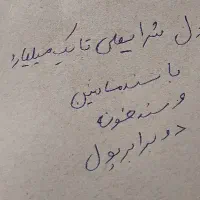 ل شرایطی تا یک میلیارد
با سند ماشین
و سند خونه
دو برابر پول